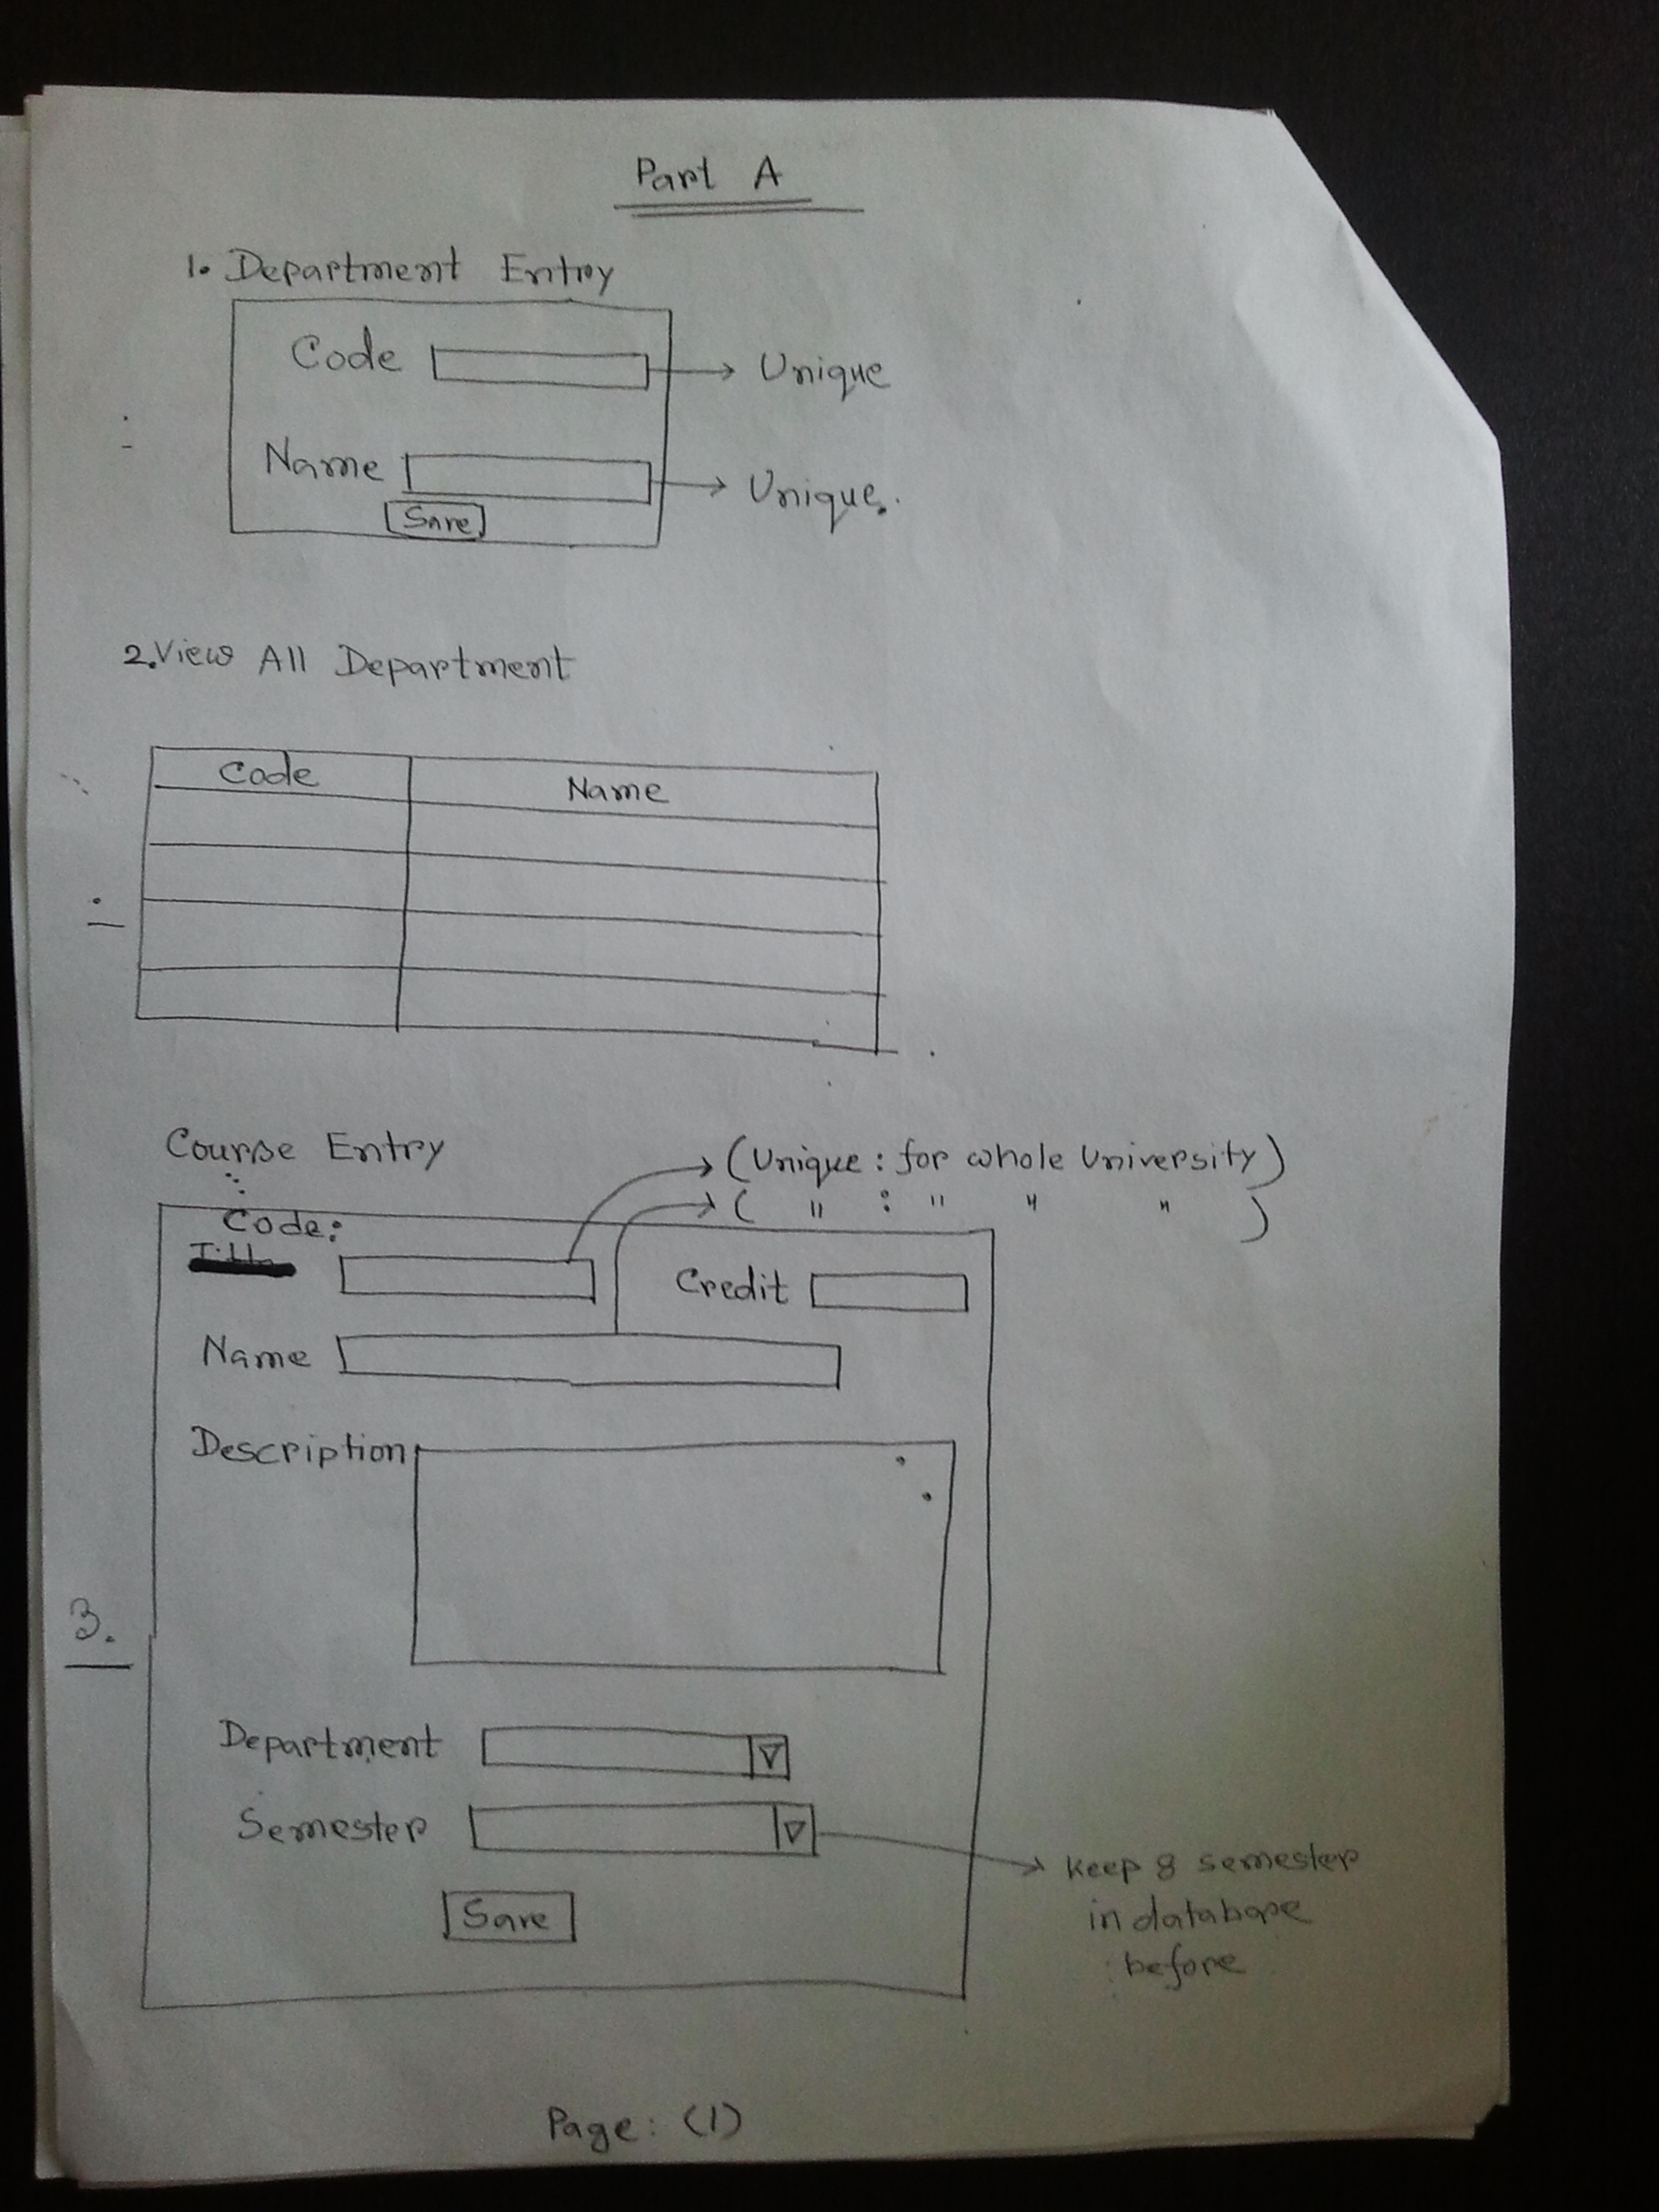 Part A
1. Department Entry
Code → Unique
Name → Unique.
Save
2. View All Department
Code Name
Course Entry
(Unique : for whole University)
( " : " " " )
Code:
Credit
Name
Description
3.
Department
Semester
keep 8 semester
in database
before
Save
Page: (1)